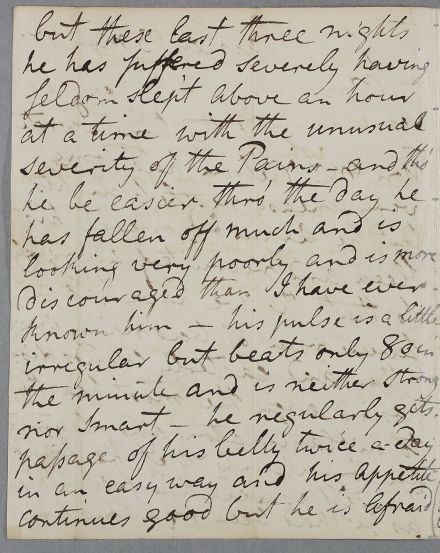 but these last three nights
he has suffered severely having
seldom slept above an hour
at a time with the unusual
severity of the Pains - and tho'
he be easier thro' the day he
has fallen off much and is
looking very poorly and is more
discouraged than I have ever
known him - his pulse is a little
irregular but beats only 80 in
the minute and is neither strong
nor smart - he regularly gets
passage of his belly twice a-day
in an easy way and his appetite
continues good but he is afraid